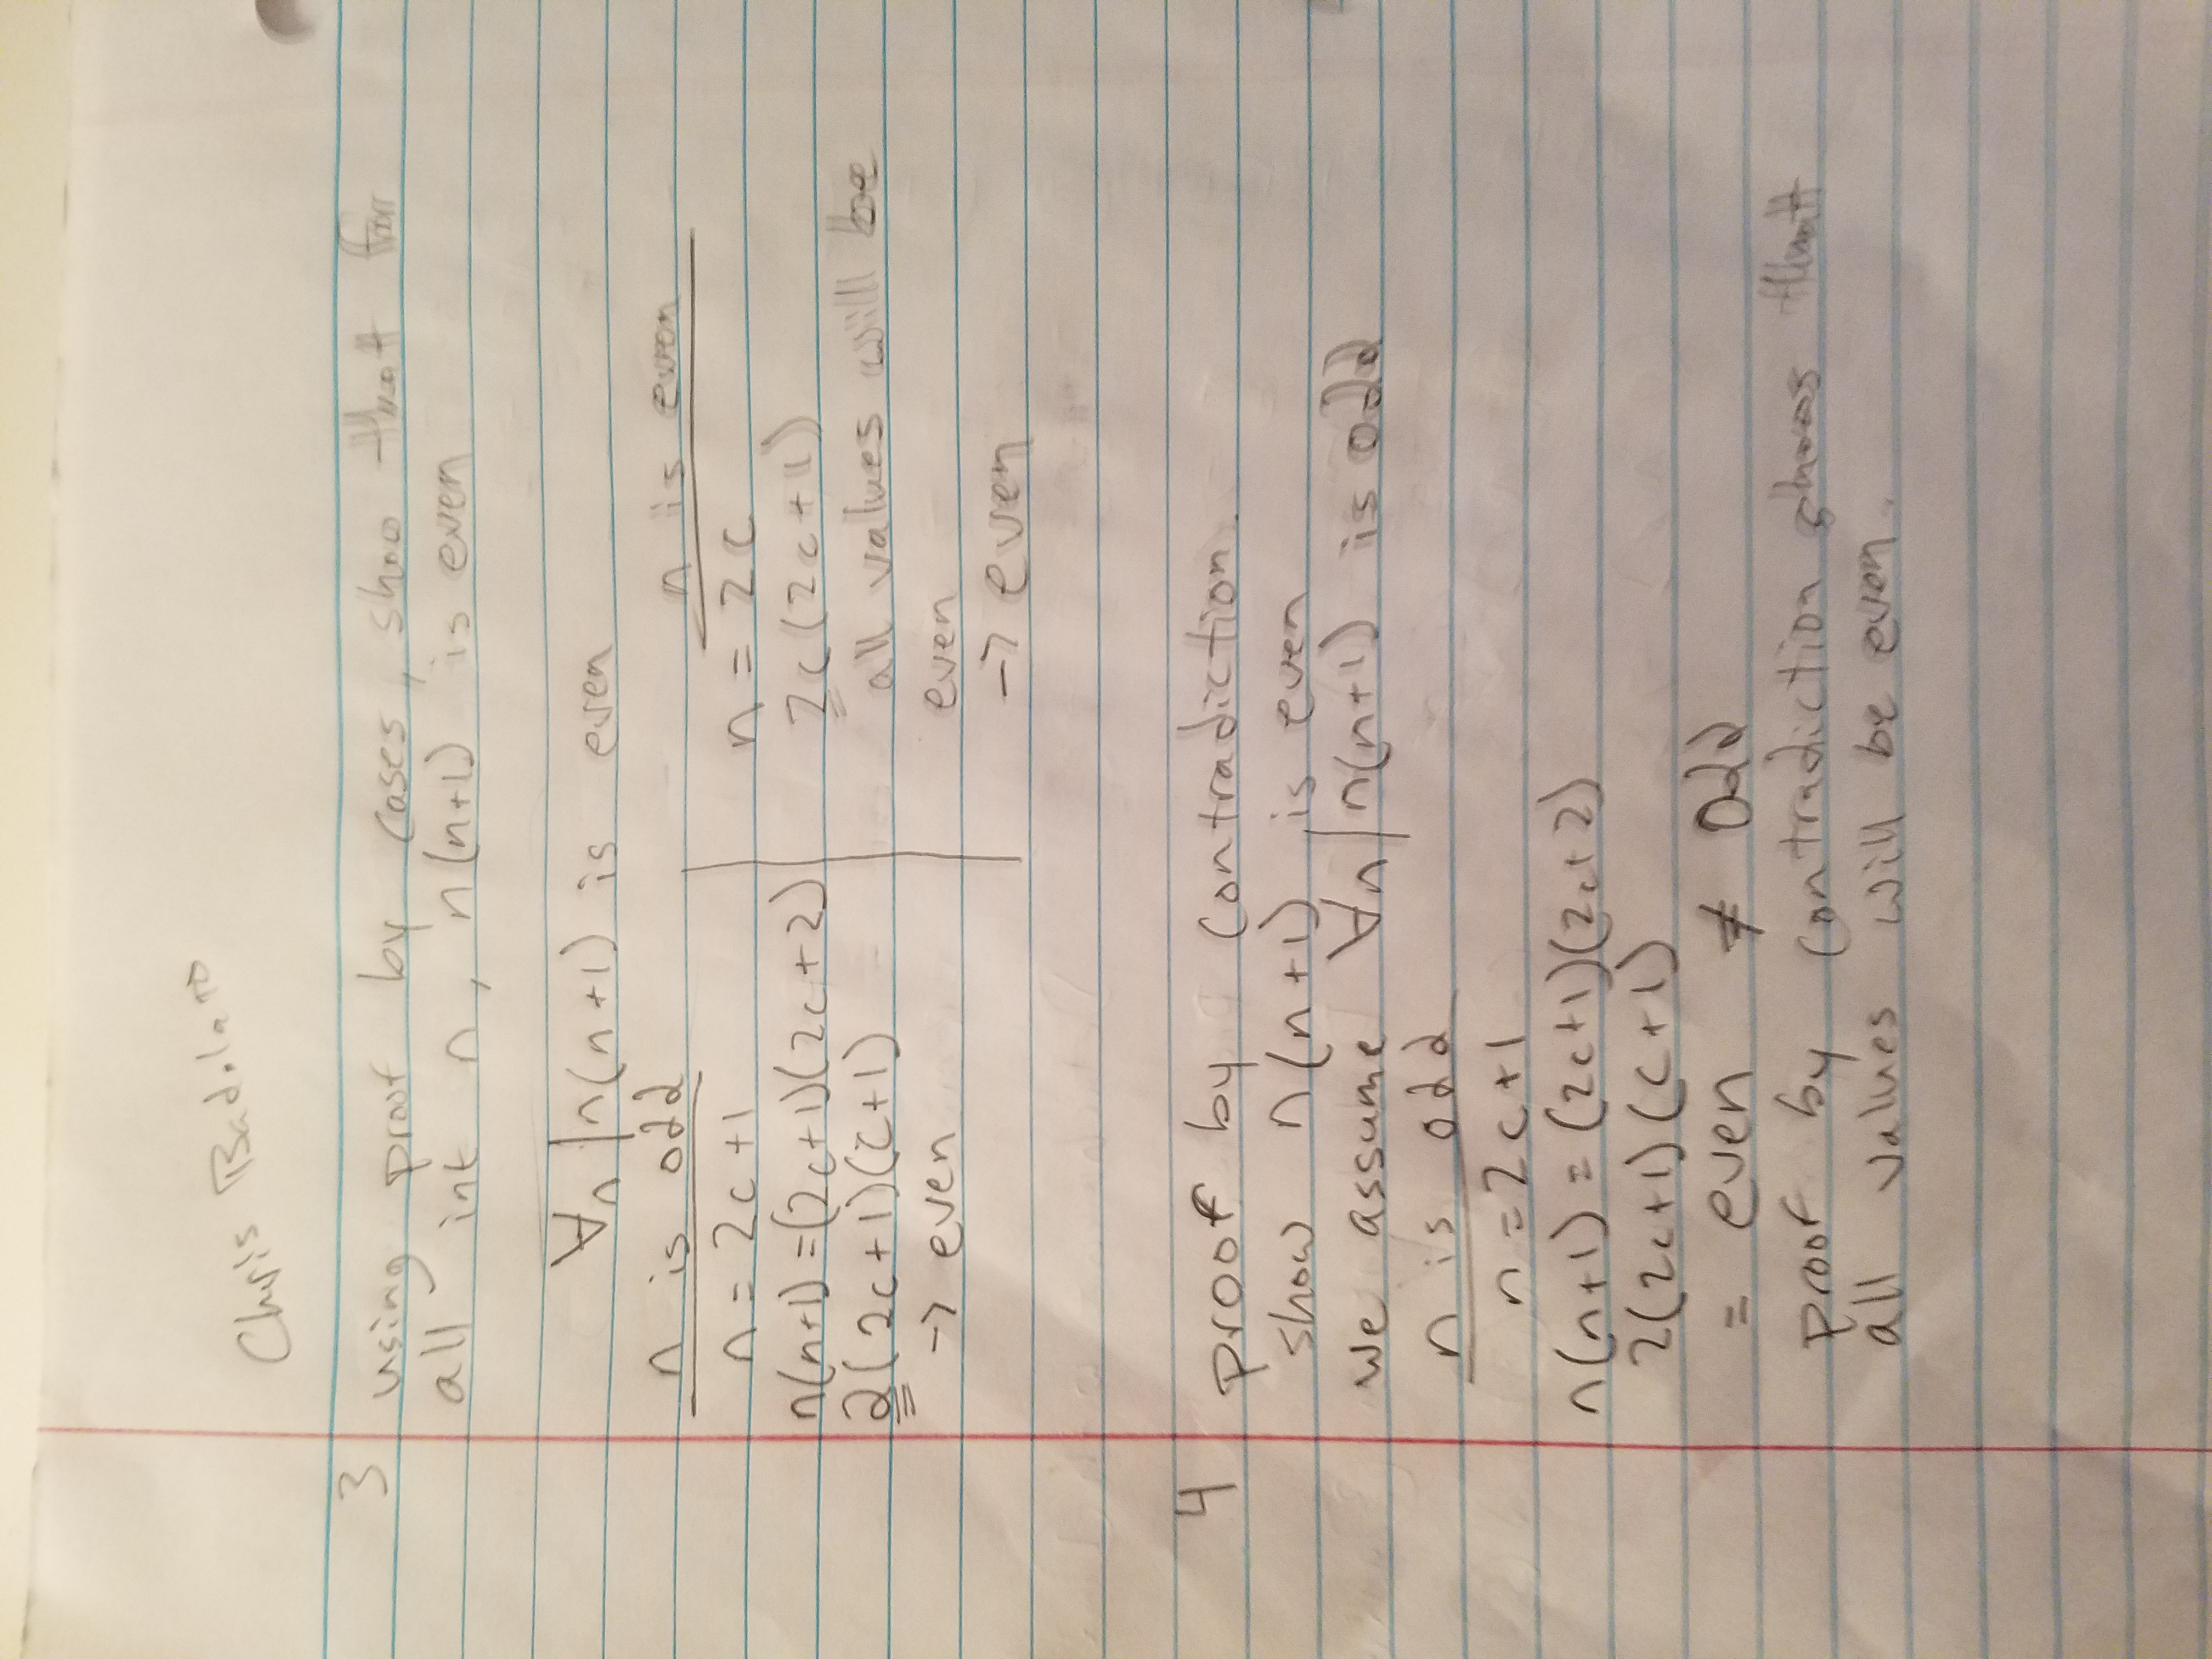 Chris Badolato
3 using proof by cases, show that for
all int n, n(n+1) is even
∀n | n(n+1) is even
n is odd
n = 2c+1
n(n+1) = (2c+1)(2c+2)
2(2c+1)(c+1)
→ even
n is even
n = 2c
2c(2c+1)
all values will be
even
→ even
4 proof by contradiction.
show n(n+1) is even
we assume ∀n | n(n+1) is odd
n is odd
n = 2c+1
n(n+1) = (2c+1)(2c+2)
2(2c+1)(c+1)
= even ≠ odd
proof by contradiction shows that
all values will be even.